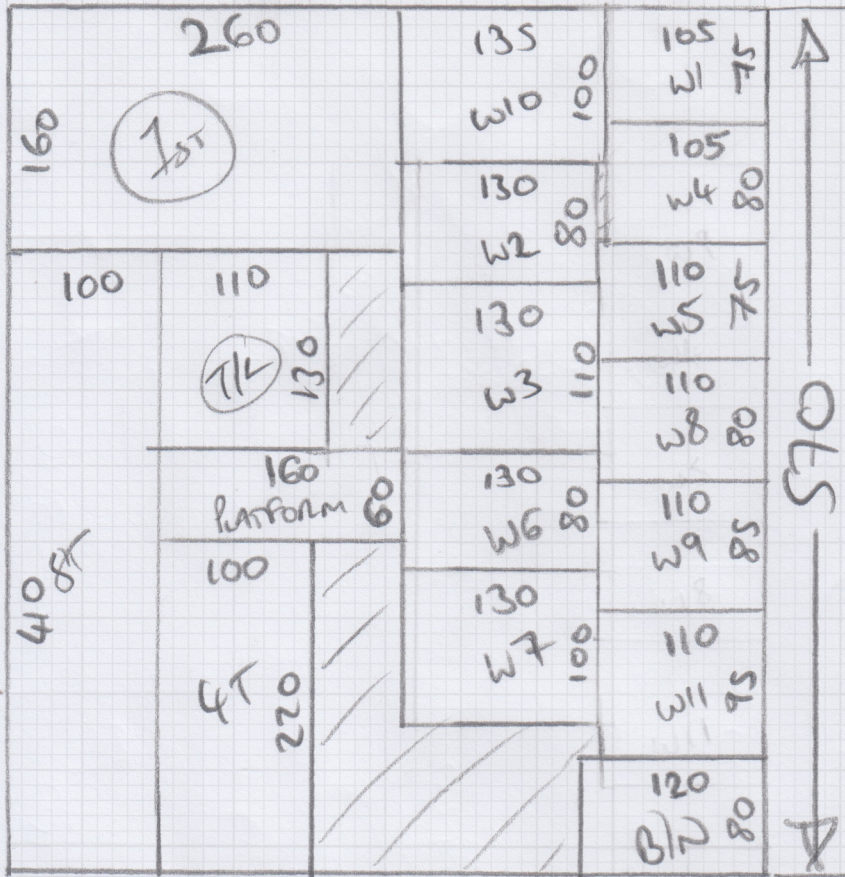 260
160
1ST
135
W10
100
105
W1
75
130
W2
80
105
W4
80
100
410
8T
110
T/L
130
130
W3
110
110
W5
75
110
W8
80
160
PLATFORM
60
130
W6
80
110
W9
85
100
4T
220
130
W7
100
110
W11
95
120
B/N
80
570